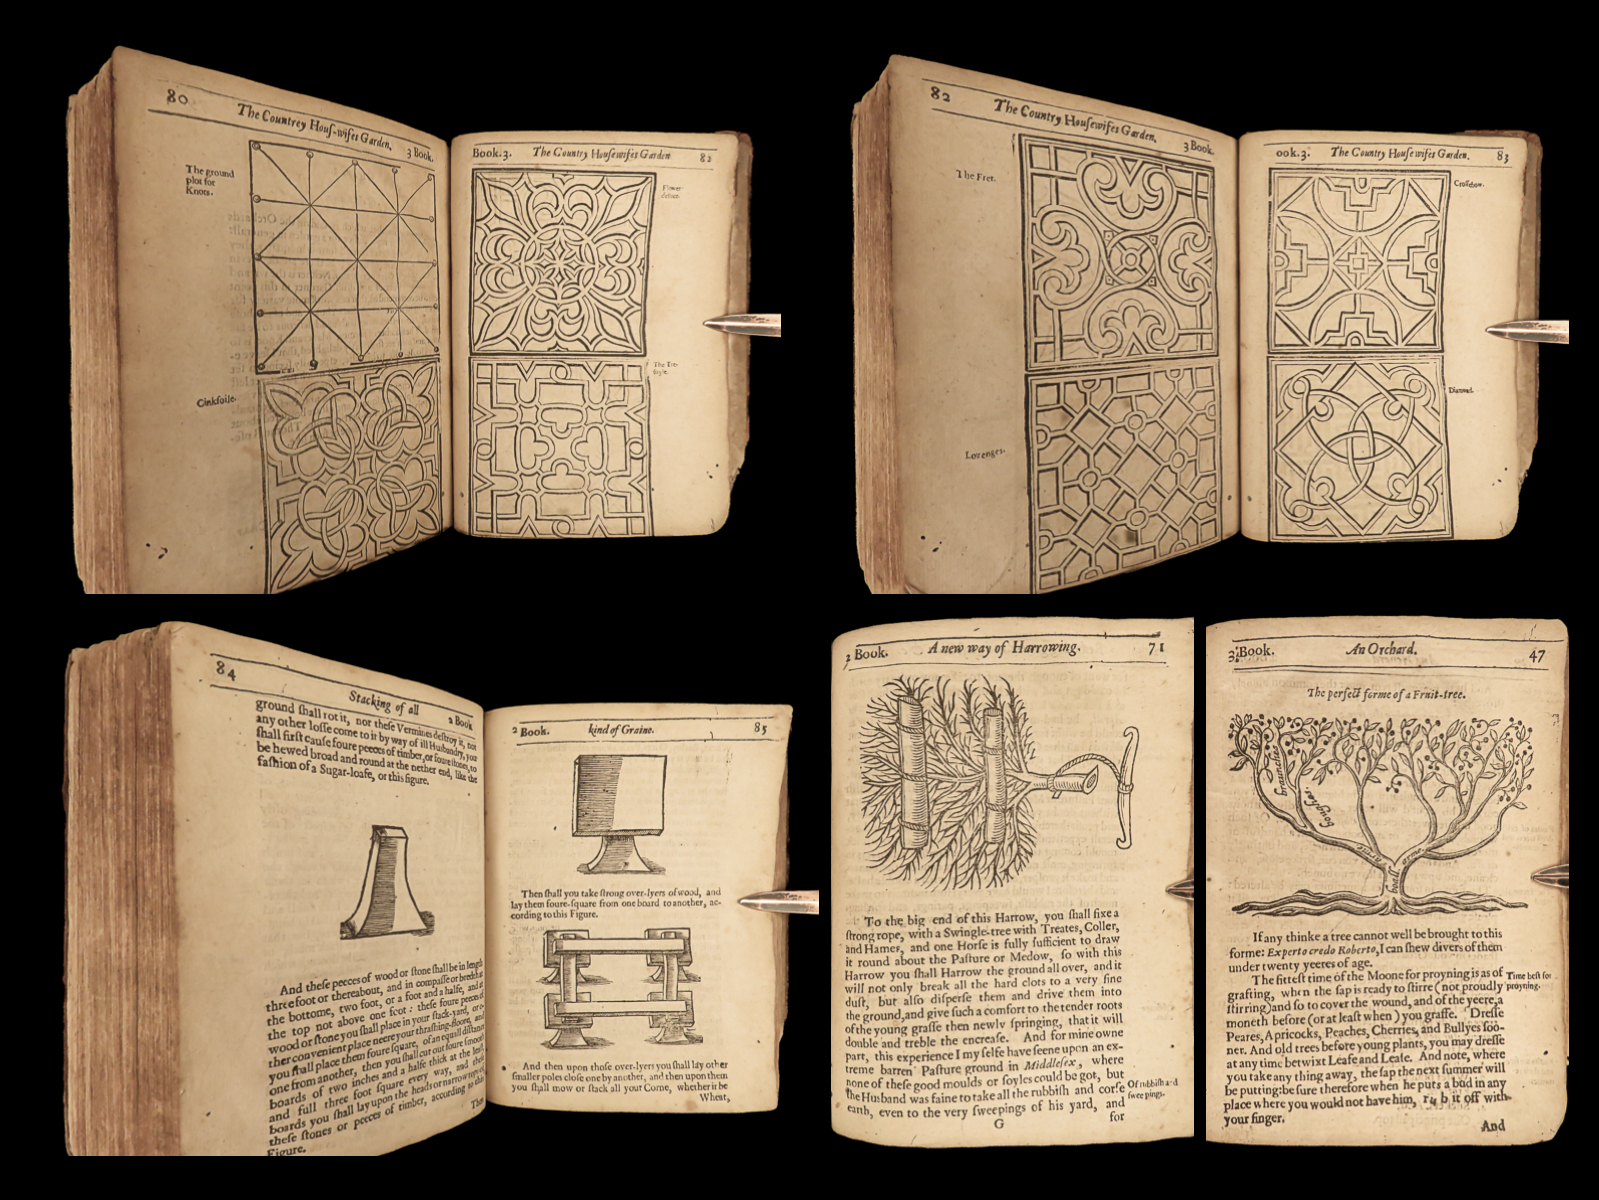 80
The Countrey Houſ-wifes Garden.
3 Book.
The ground
plot for
Knots.
Cinkfoile.
Book.3.
The Country Houſewifes Garden
82
The Country Houſewifes Garden.
3 Book.
The Fret.
Lozenges.
ook.3.
The Country Houſewifes Garden.
83
Croſſebow.
Diamond.
84
Stacking of all
2 Book
ground ſhall rot it, nor theſe Vermines deſtroy it, nor
any other loſſe come to it by way of ill Husbandry, you
ſhall firſt cauſe foure peeces of timber, or foure ſtones, to
be hewed broad and round at the nether end, like the
faſhion of a Sugar-loafe, or this figure.
And theſe peeces of wood or ſtone ſhall be in length
three foot or thereabout, and in compaſſe or breadth at
the bottome, two foot, or a foot and a halfe, and at
the top not above one foot: theſe foure peeces of
wood or ſtone you ſhall place in your ſtack-yard, or o-
ther convenient place neere your thraſhing-floore, and
you ſhall place them foure ſquare, of an equall diſtance
one from another, then you ſhall cut out foure ſmooth
boards of two inches and a halfe thick at the leaſt,
and full three foot ſquare every way, and theſe
boards you ſhall lay upon the heads or narrow tops of
theſe ſtones or peeces of timber, according to this
Figure.
Then
2 Book.
kind of Graine.
85
Then ſhall you take ſtrong over-lyers of wood, and
lay them foure-ſquare from one board to another, ac-
cording to this Figure.
And then upon thoſe over-lyers you ſhall lay other
ſmaller poles cloſe one by another, and then upon them
you ſhall mow or ſtack all your Corne, whether it be
Wheat,
2 Book.
A new way of Harrowing.
71
To the big end of this Harrow, you ſhall fixe a
ſtrong rope, with a Swingle-tree with Treates, Coller,
and Hames, and one Horſe is fully ſufficient to draw
it round about the Paſture or Medow, ſo with this
Harrow you ſhall Harrow the ground all over, and it
will not only break all the hard clots to a very fine
duſt, but alſo diſperſe them and drive them into
the ground, and give ſuch a comfort to the tender roots
of the young graſſe then newly ſpringing, that it will
double and treble the encreaſe. And for mine owne
part, this experience I my ſelfe have ſeene upon an ex-
treme barren Paſture ground in Middleſex, where
none of theſe good moulds or ſoyles could be got, but
the Husband was faine to take all the rubbiſh and corſe
earth, even to the very ſweepings of his yard, and
Of rubbiſh and
ſweepings.
G
for
3 Book.
An Orchard.
47
The perfect forme of a Fruit-tree.
braunches
boughes
armes
arme
boall
If any thinke a tree cannot well be brought to this
forme: Experto credo Roberto, I can ſhew divers of them
under twenty yeeres of age.
The fitteſt time of the Moone for proyning is as of
grafting, when the ſap is ready to ſtirre (not proudly
ſtirring) and ſo to cover the wound, and of the yeere, a
moneth before (or at leaſt when) you graffe. Dreſſe
Peares, Apricocks, Peaches, Cherries, and Bullyes ſoo-
ner. And old trees before young plants, you may dreſſe
at any time betwixt Leafe and Leafe. And note, where
you take any thing away, the ſap the next ſummer will
be putting: be ſure therefore when he puts a bud in any
place where you would not have him, rub it off with
your finger.
Time beſt for
proyning.
And